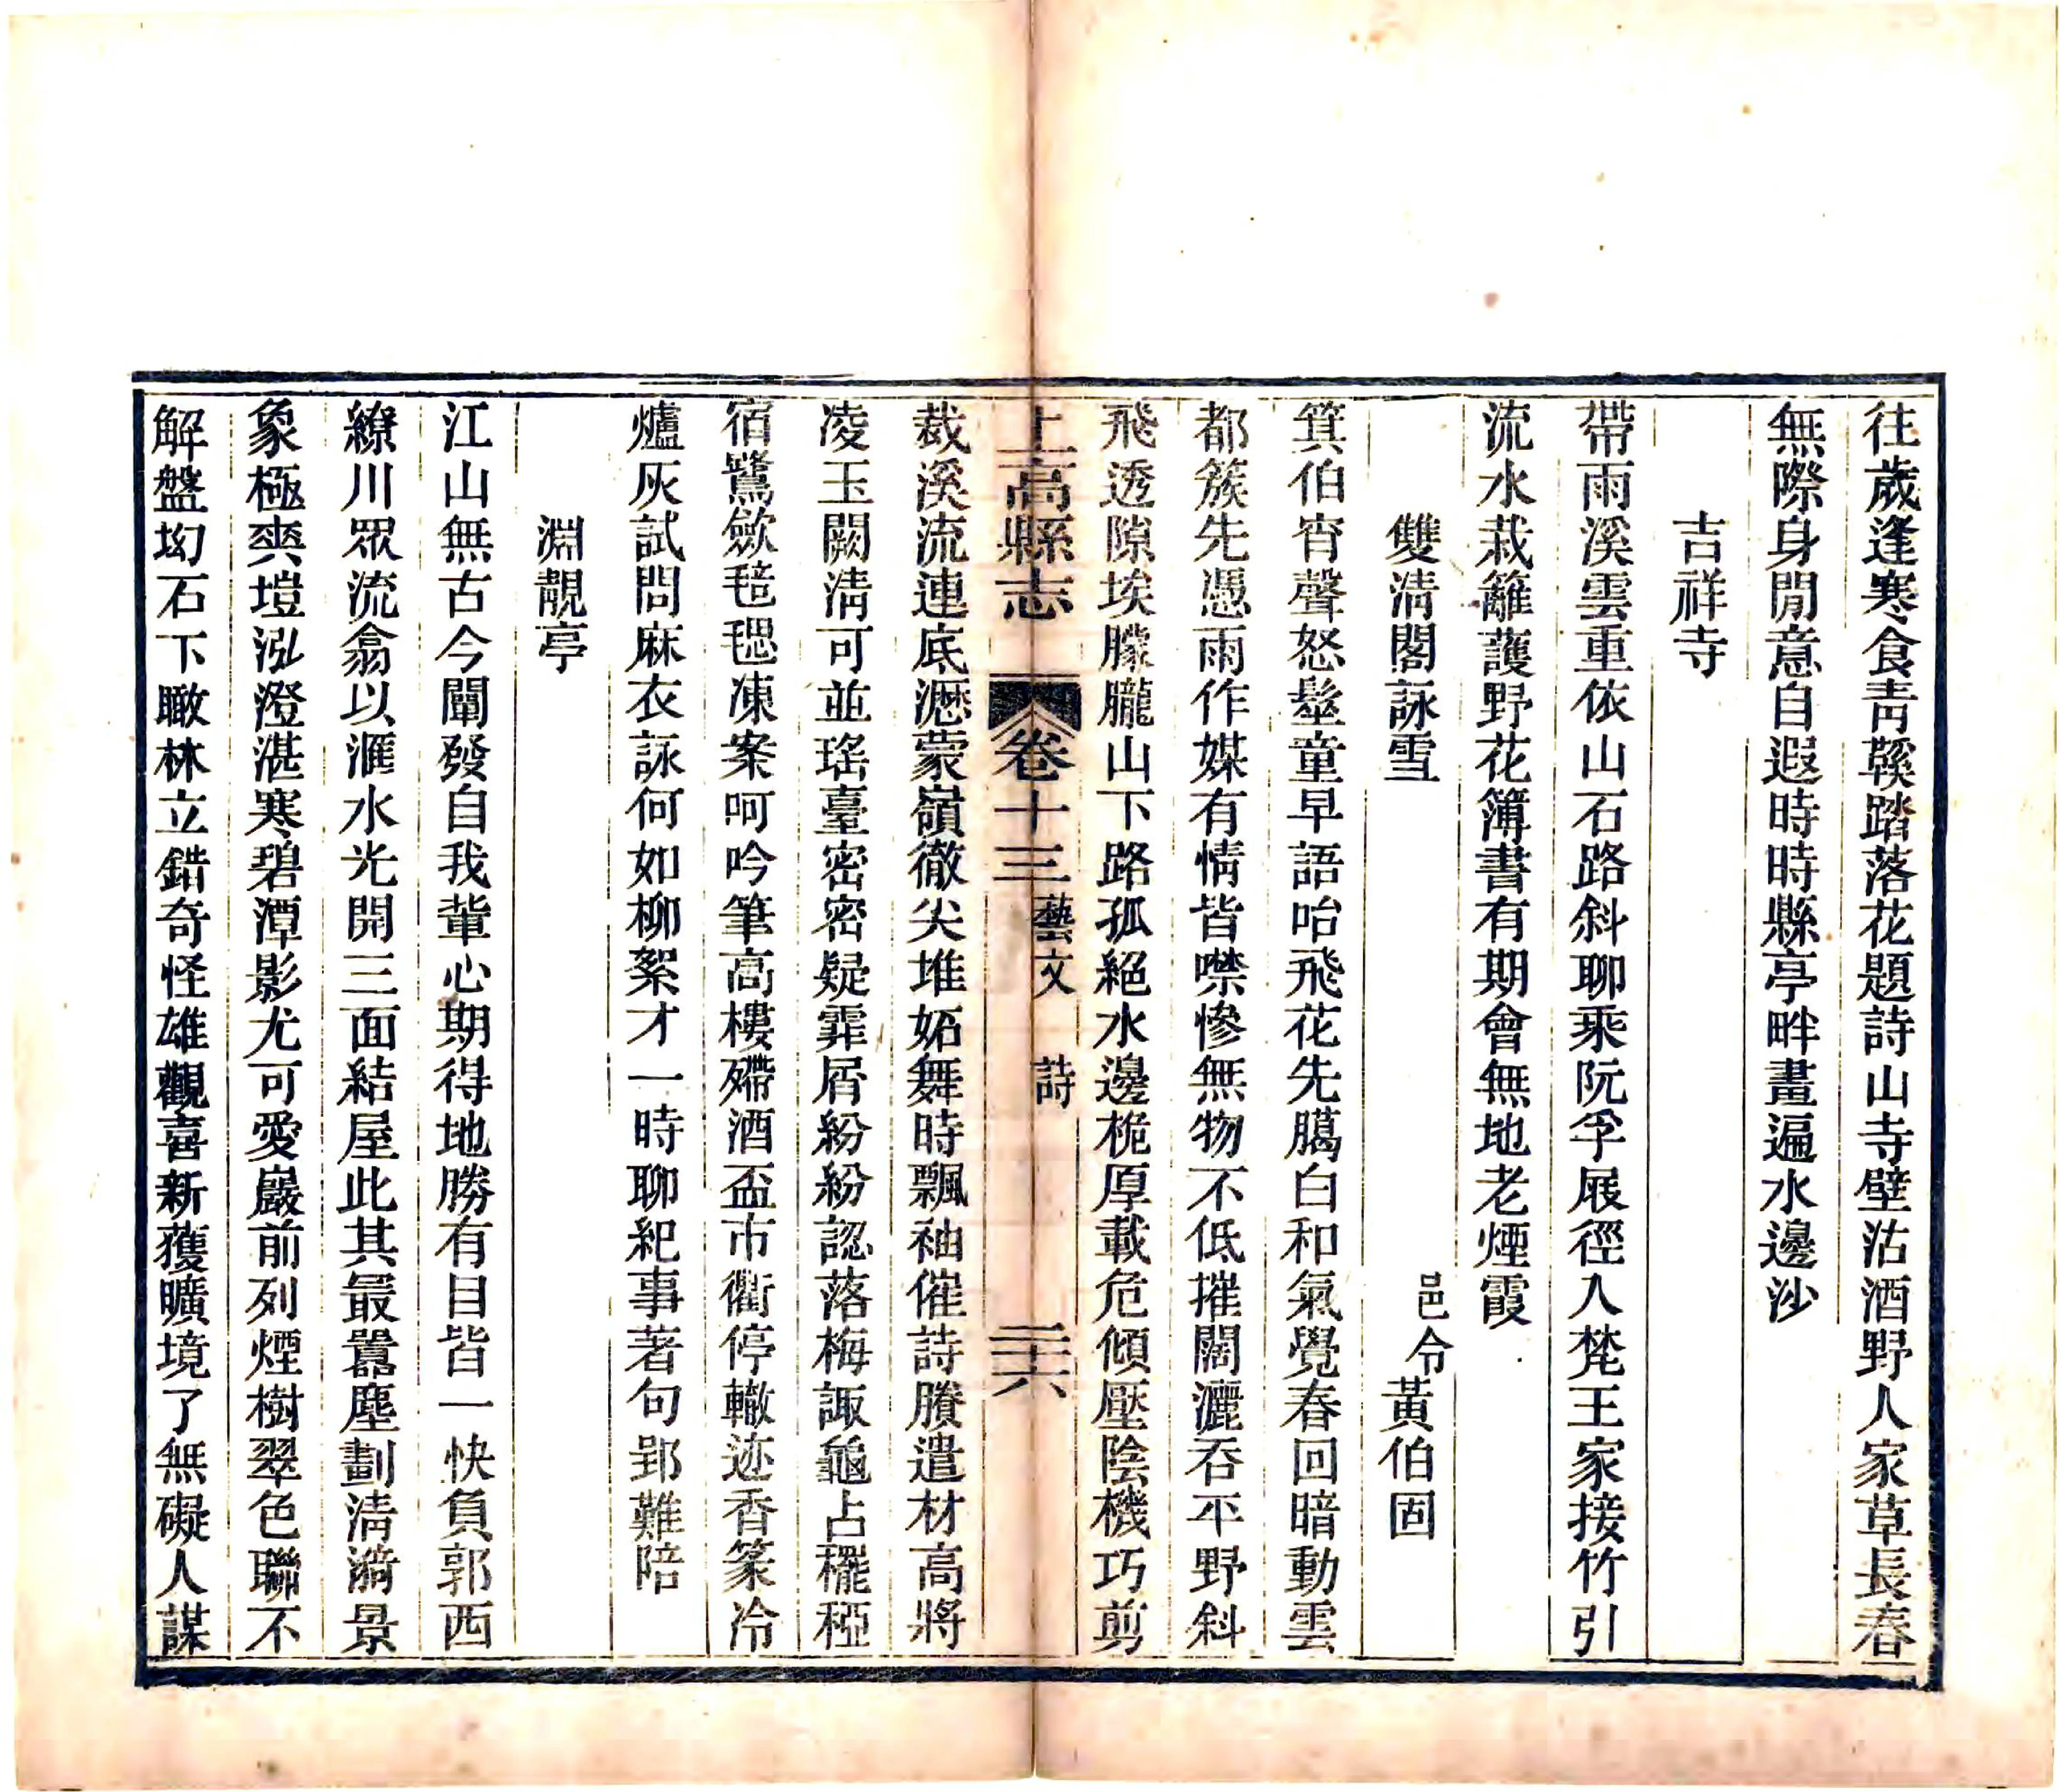 往歲逢寒食青鞵踏落花題詩山寺壁沽酒野人家草長春
無際身閒意自遐時時縣亭畔畫遍水邊沙
吉祥寺
帶雨溪雲重依山石路斜聊乘阮孚屐徑入梵王家接竹引
流水栽籬護野花簿書有期會無地老煙霞
雙清閣詠雪 邑令黃伯固
箕伯宵聲怒髽童早語咍飛花先臈白和氣覺春回暗動雲
都簇先憑雨作媒有情皆噤慘無物不低摧闊灑吞平野斜
飛透隙埃朦朧山下路孤絕水邊桅厚載危傾壓陰機巧剪
上高縣志 卷十三 藝文 詩 二十六
裁溪流連底瀝蒙嶺徹尖堆妬舞時飄袖催詩賸遣材高將
凌玉闕清可並瑤臺密密疑霏屑紛紛認落梅諏龜占䆉稏
宿鷺歛毰毸凍案呵吟筆高樓殢酒盃市衢停轍迹香篆冷
爐灰試問麻衣詠何如柳絮才一時聊紀事著句郢難陪
淵靚亭
江山無古今闡發自我輩心期得地勝有目皆一快負郭西
繚川眾流翕以滙水光開三面結屋此其最囂塵劃清漪景
象極爽塏泓澄湛寒碧潭影尤可愛巖前列煙樹翠色聯不
解盤㘭石下瞰林立錯奇怪雄觀喜新獲曠境了無礙人謀